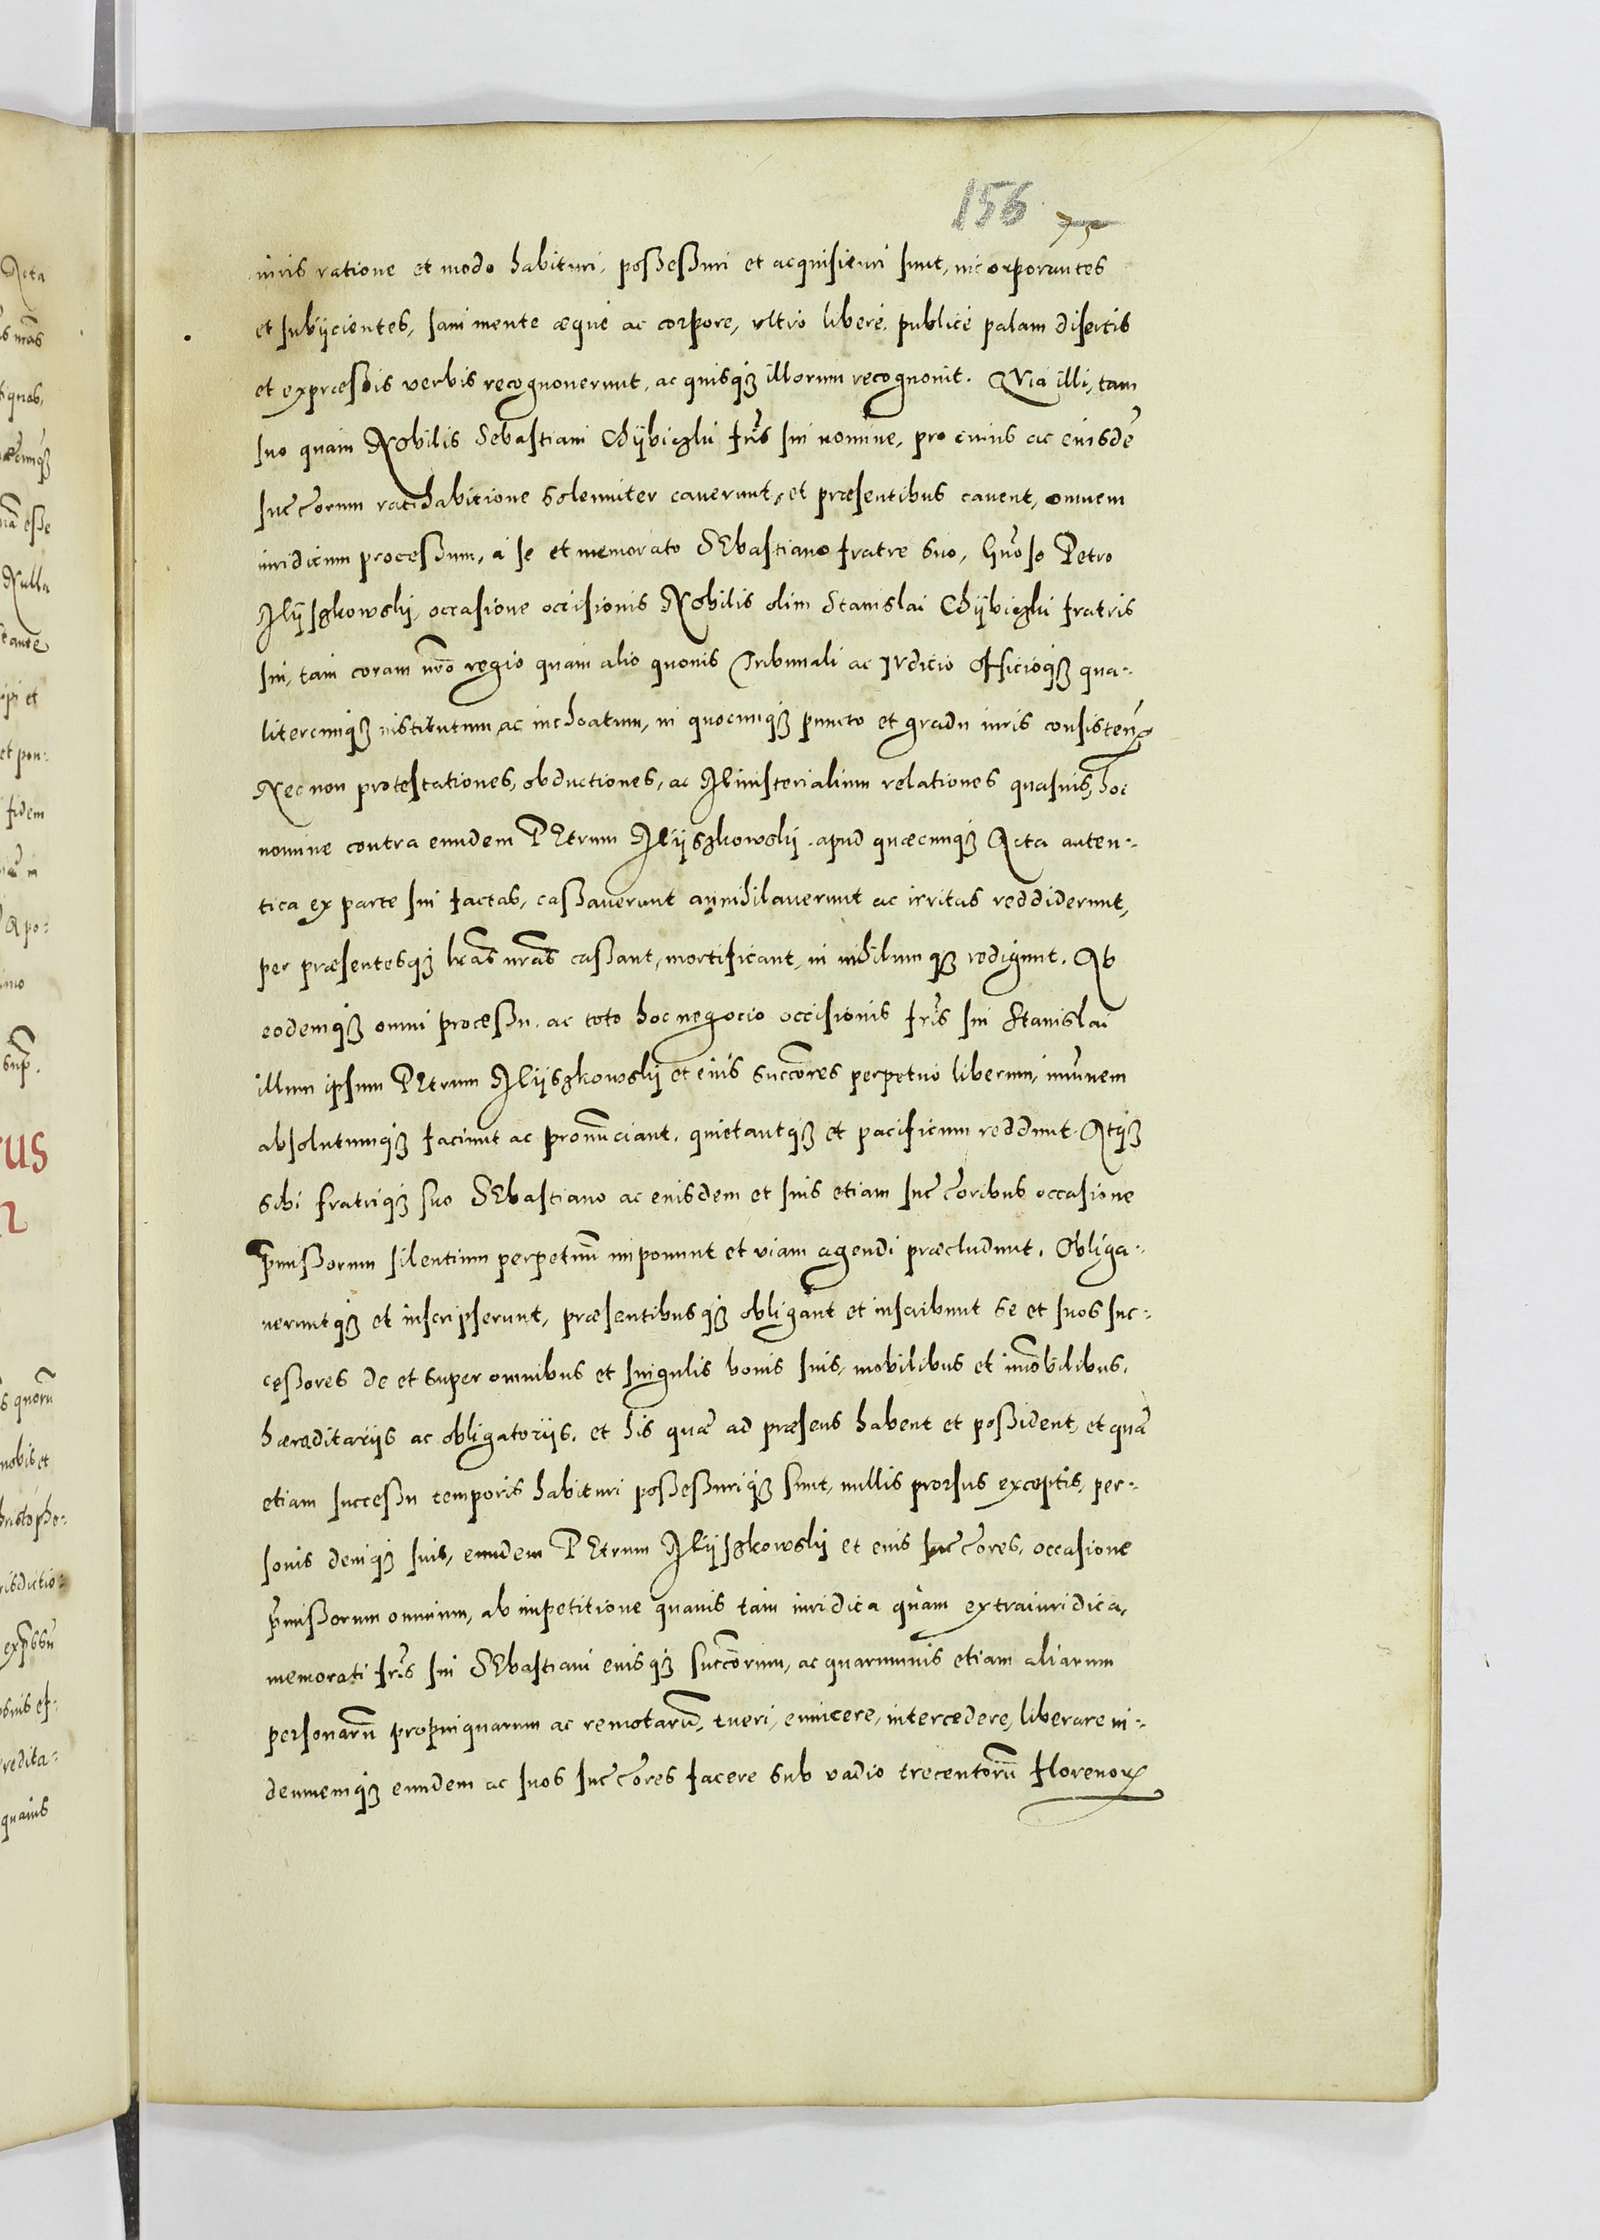 156 75
iuris ratione et modo habituri, possessuri et acquisituri sunt, incorporantes
et subijcientes, sani mente æquè ac corpore, ultro liberè, publicè palam disertis
et expræssis verbis recognouerunt, ac quisqȝ illorum recognouit. Quia illi, tam
suo quam Nobilis Sebastiani Chÿbiczki fr̃is sui nomine, pro cuius ac eiusdẽ
succ̃orum ratihabitione solenniter cauerunt, et præsentibus cauent, omnem
iuridicum processum, à se et memorato Sebastiano fratre suo, Gñoso Petro
Mÿszkowskÿ, occasione occisionis Nobilis olim Stanislai Chÿbiczki fratris
sui, tam coram nr̃o regio quam alio quouis Tribunali ac Iudicio officioqȝ qua-
litercunqȝ institutum ac inchoatum, in quocunqȝ puncto et gradu iuris consisteñ.
Nec non protestationes, obductiones, ac Ministerialium relationes quasuis, hoc
nomine contra eundem Petrum Mÿszkowskÿ apud quæcunqȝ Acta auten-
tica ex parte sui factas, cassauerunt annihilauerunt ac irritas reddiderunt,
per præsentesqȝ lr̃as nr̃as cassant, mortificant, in nihilumqȝ redigunt. Ab
eodemqȝ omni processu, ac toto hoc negocio occisionis fr̃is sui Stanislai
illum ipsum Petrum Mÿszkowskÿ et eius succ̃ores perpetuo liberum, im̃unem
absolutumqȝ faciunt ac pronũciant, quietantqȝ et pacificum reddunt. Atqȝ
sibi fratriqȝ suo Sebastiano ac eiusdem et suis etiam succ̃oribus occasione
p̃missorum silentium perpetuũ imponunt et viam agendi præcludunt. Obliga-
ueruntqȝ et inscripserunt, præsentibusqȝ obligant et inscribunt se et suos suc-
cessores de et super omnibus et singulis bonis suis, mobilibus et im̃obilibus,
hæreditarijs ac obligatorijs, et his quæ ad præsens habent et possident, et quæ
etiam successu temporis habituri possessuriqȝ sunt, nullis prorsus exceptis, per-
sonis deniqȝ suis, eundem Petrum Mÿszkowskÿ et eius succ̃ores, occasione
p̃missorum omnium, ab impetitione quauis tam iuridica quàm extraiuridica,
memorati fr̃is sui Sebastiani eiusqȝ succ̃orum, ac quarumuis etiam aliarum
personarũ propinquarum ac remotarũ, tueri, euincere, intercedere, liberare in-
demnemqȝ eundem ac suos succ̃ores facere sub vadio trecentorũ florenoꝝ